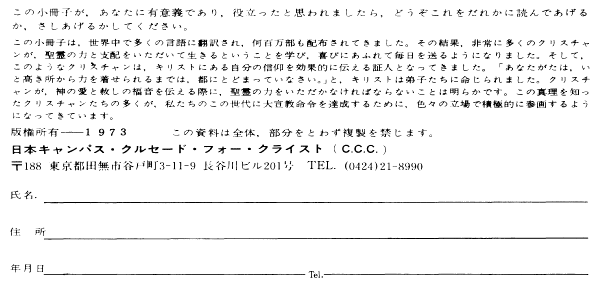 この小冊子が、あなたに有意義であり、役立ったと思われましたら、どうぞこれをだれかに読んであげる
か、さしあげるかしてください。
この小冊子は、世界中で多くの言語に翻訳され、何百万部も配布されてきました。その結果、非常に多くのクリスチャ
ンが、聖霊の力と支配をいただいて生きるということを学び、喜びにあふれて毎日を送るようになりました。そして、
このようなクリスチャンは、キリストにある自分の信仰を効果的に伝える証人となってきました。「あなたがたは、い
と高き所から力を着せられるまでは、都にとどまっていなさい。」と、キリストは弟子たちに命じられました。クリスチ
ャンが、神の愛と赦しの福音を伝える際に、聖霊の力をいただかなければならないことは明らかです。この真理を知っ
たクリスチャンたちの多くが、私たちのこの世代に大宣教命令を達成するために、色々の立場で積極的に参画するよう
になってきています。
版権所有――1973 この資料は全体、部分をとわず複製を禁じます。
日本キャンパス・クルセード・フォー・クライスト(C.C.C.)
〒188 東京都田無市谷戸町3-11-9 長谷川ビル201号 TEL. (0424)21-8990
氏名.
住 所
年月日 Tel.